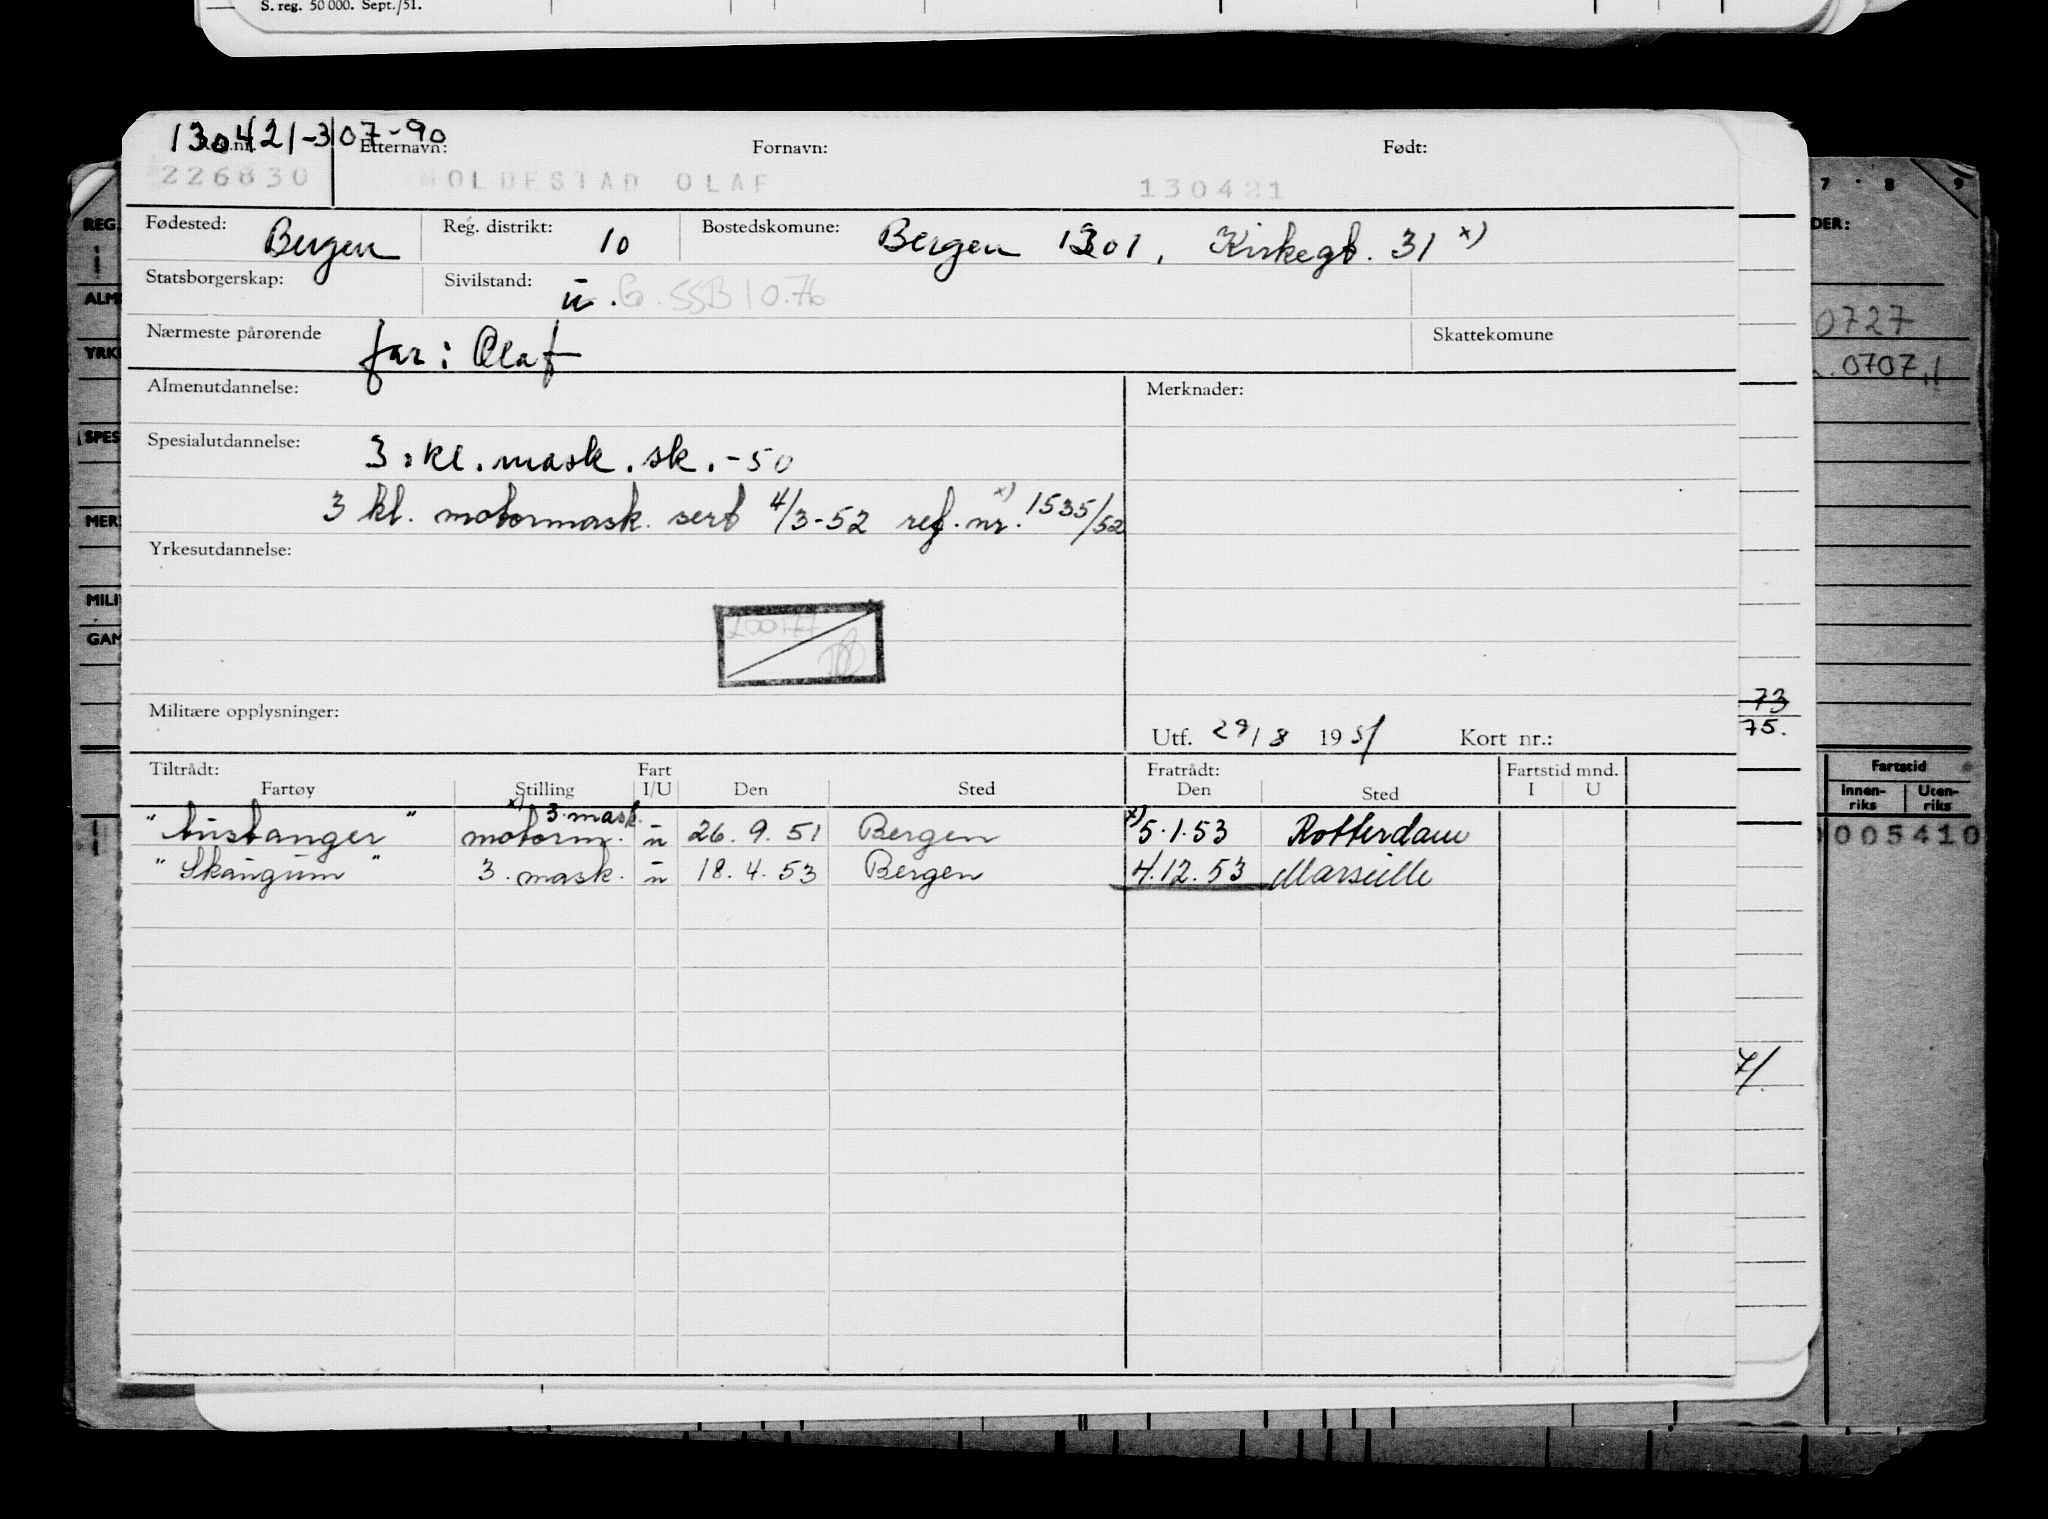 S. reg. 50 000. Sept./51.
130421-307-90
Etternavn: Fornavn: Født:
226830 MOLDESTAD OLAF 130421
Fødested: Bergen Reg. distrikt: 10 Bostedskomune: Bergen 1301, Kirkegt. 31 x)
Statsborgerskap: Sivilstand: u. G. SSB 10.76
Nærmeste pårørende far: Olaf Skattekomune
Almenutdannelse: Merknader:
Spesialutdannelse: 3. kl. mask. sk. -50
3 kl. motormask. sert 4/3-52 ref. nr. x) 1535/52
Yrkesutdannelse:
200177
Militære opplysninger:
Utf. 29/8 1951 Kort nr.:
Tiltrådt: Fart Fratrådt: Fartstid mnd.
Fartøy Stilling I/U Den Sted Den Sted I U
x) 3. mask.
motorm. u 26. 9. 51 Bergen x) 5.1.53 Rotterdam
"Skaugum" 3. mask. u 18. 4. 53 Bergen 4.12.53 Marseille
REG.
ALM
YRK
SPES
MER
MILI
GAM
7 8 9
DER:
0727
0707
73
75.
Fartstid
Innen-riks Uten-riks
005410
7/.